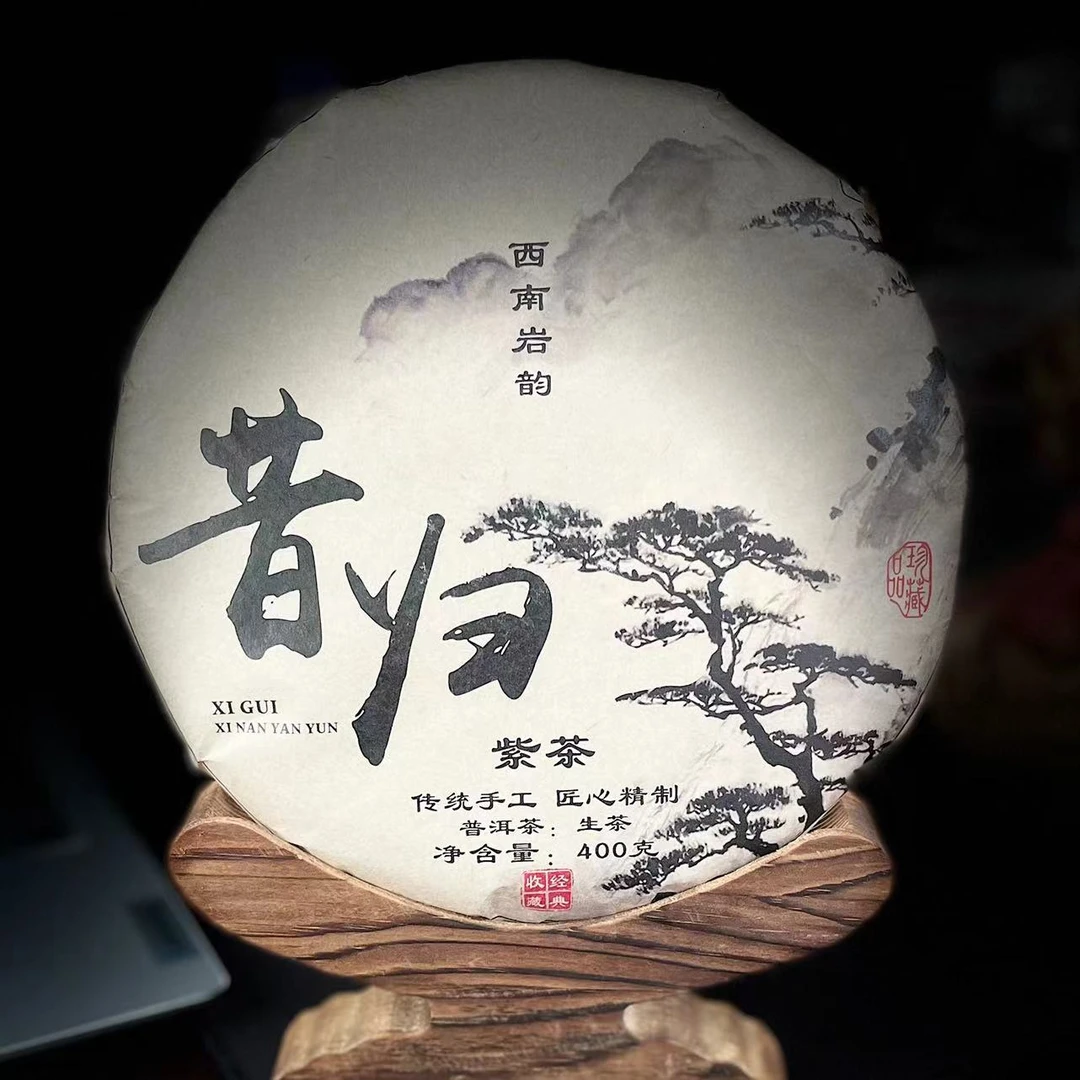 西南岩韵
昔归
XI GUI
XI NAN YAN YUN
紫茶
传统手工 匠心精制
普洱茶：生茶
净含量：400克
经典
收藏
珍藏
品